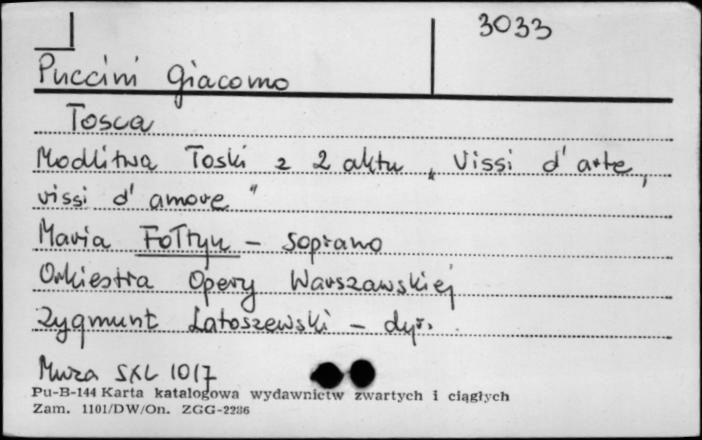 3033
Puccini Giacomo
Tosca
Modlitwa Toski z 2 aktu „Vissi d'arte,
vissi d'amore"
Maria Fołtyn - soprano
Orkiestra Opery Warszawskiej
Zygmunt Latoszewski - dyr.
Muza SXL 1017
Pu-B-144 Karta katalogowa wydawnictw zwartych i ciągłych
Zam. 1101/DW/On. ZGG-2236